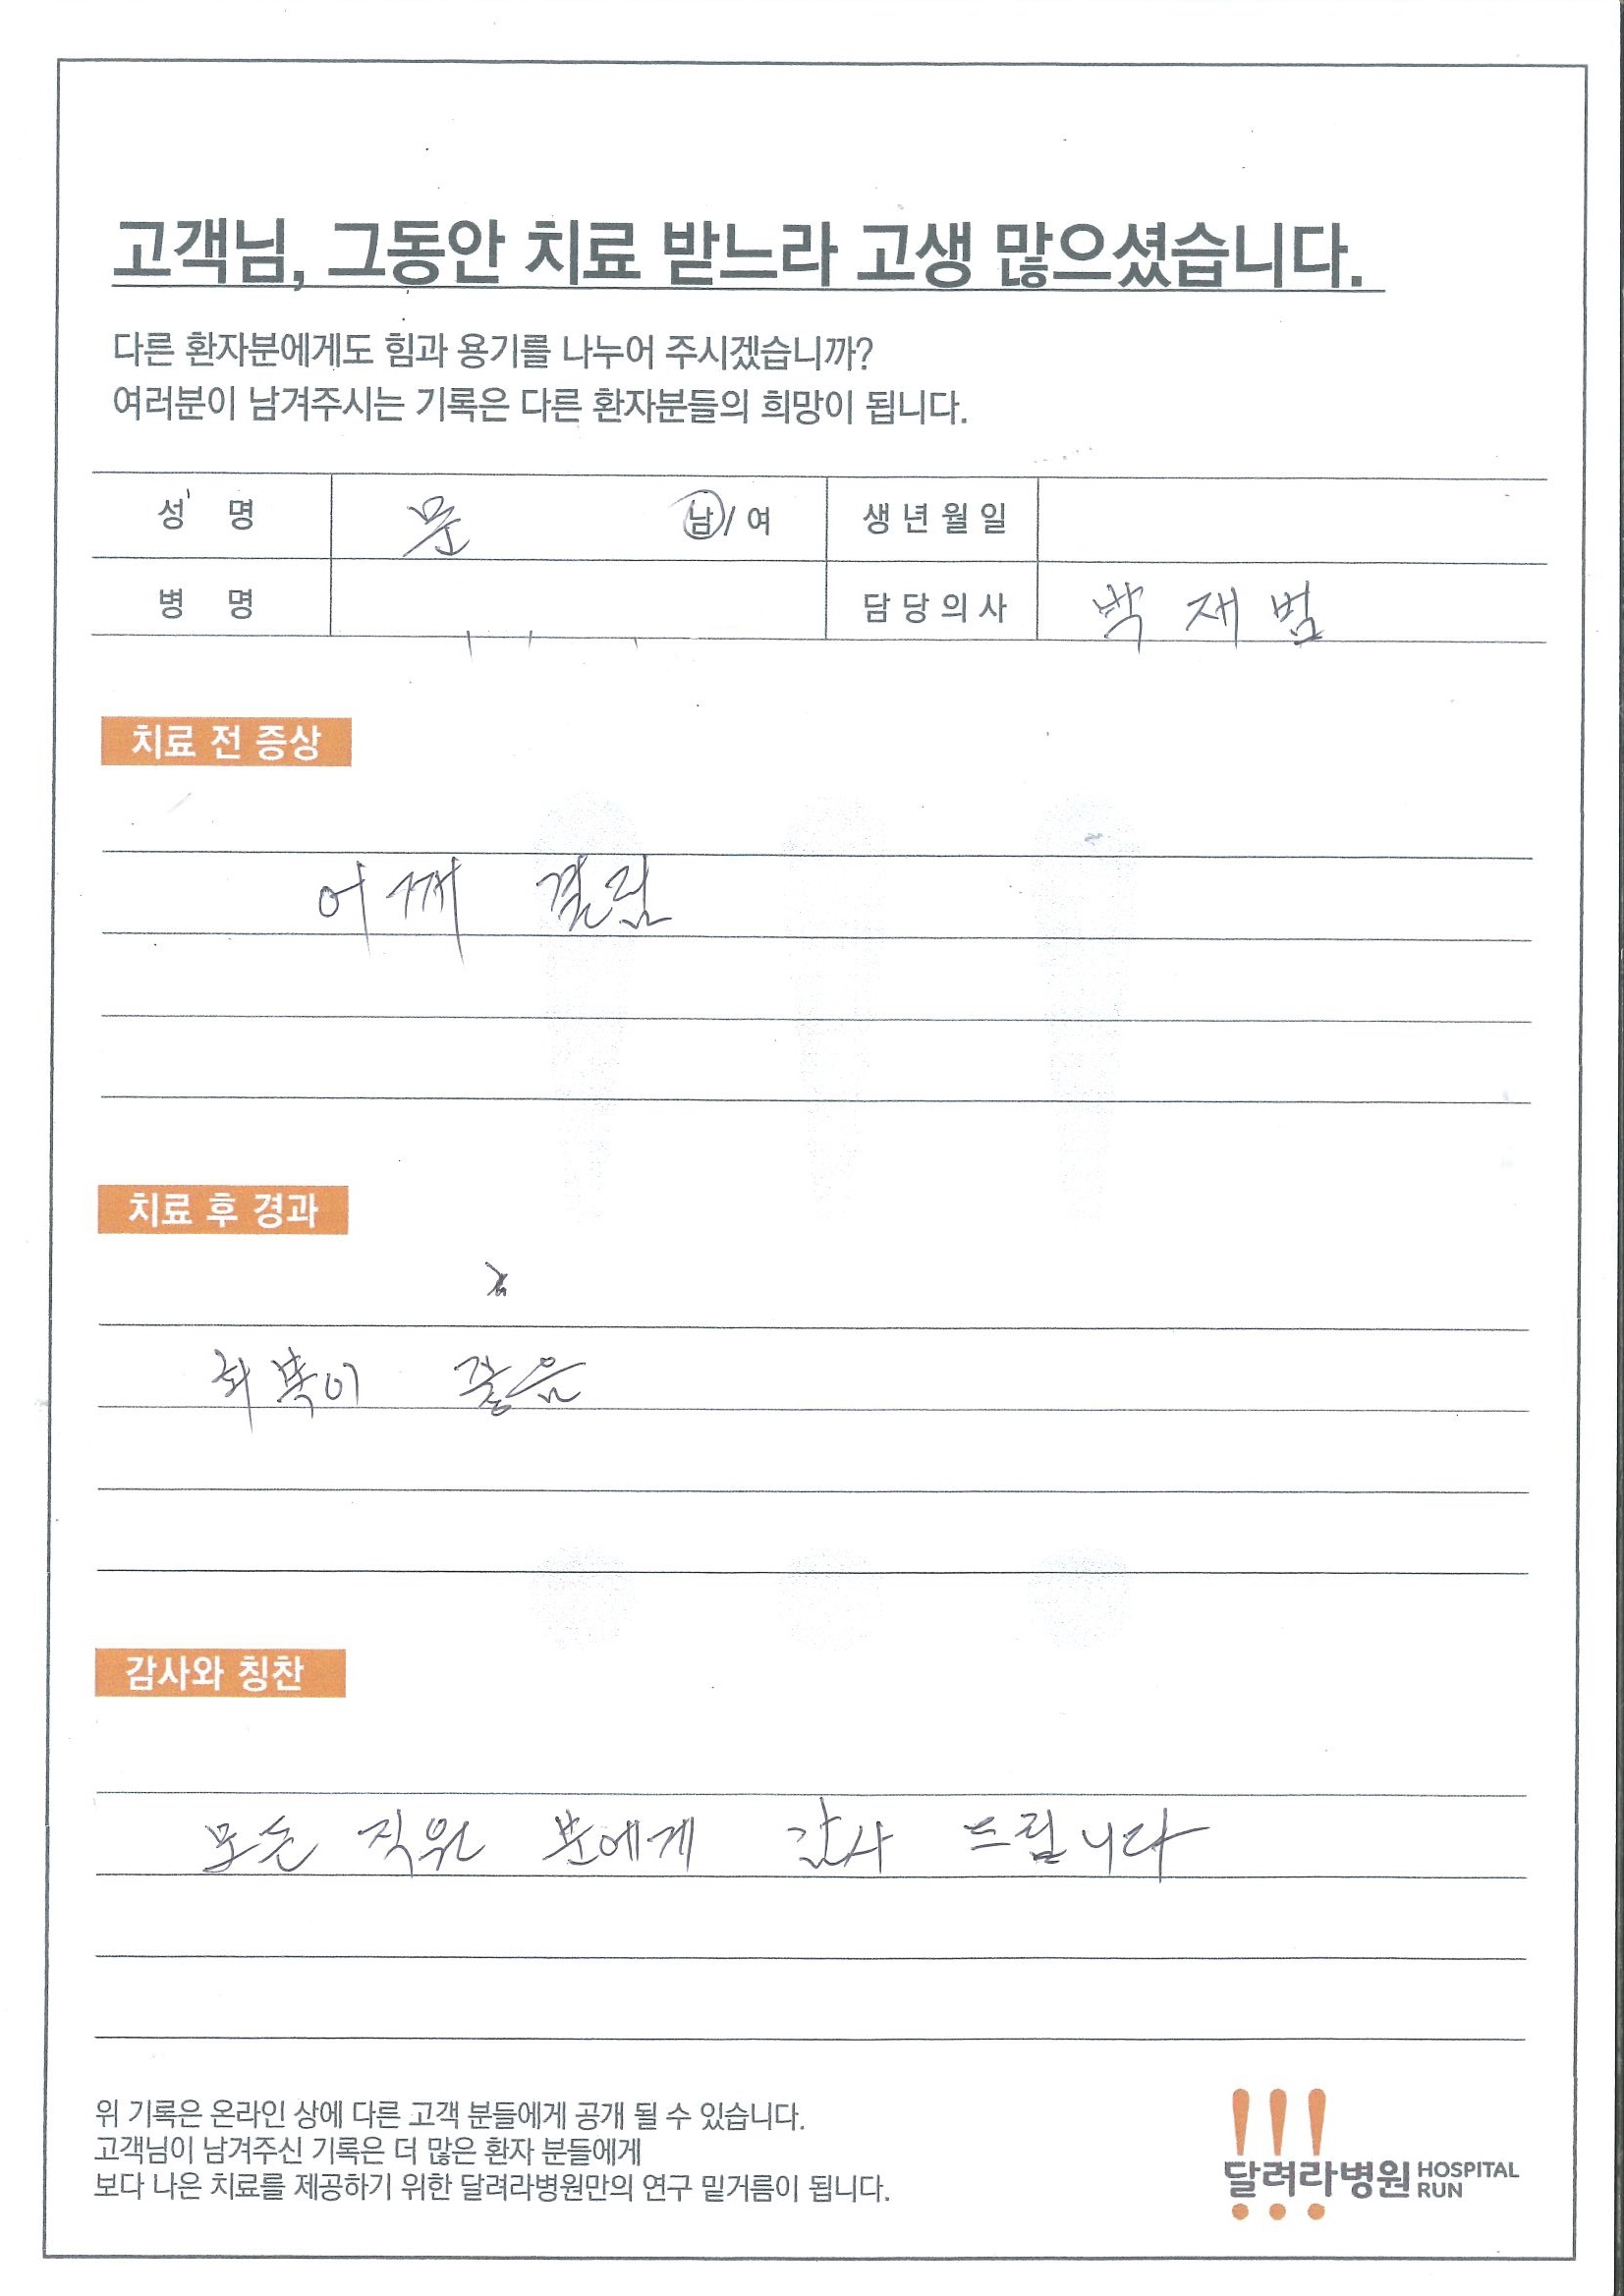 고객님, 그동안 치료 받느라 고생 많으셨습니다.
다른 환자분에게도 힘과 용기를 나누어 주시겠습니까?
여러분이 남겨주시는 기록은 다른 환자분들의 희망이 됩니다.
성 명 문 남/여 생년월일
병 명 담당의사 박재범
치료 전 증상
어깨 결림
치료 후 경과
회복이 좋음
감사와 칭찬
모든 직원 분에게 감사 드립니다
위 기록은 온라인 상에 다른 고객 분들에게 공개 될 수 있습니다.
고객님이 남겨주신 기록은 더 많은 환자 분들에게
보다 나은 치료를 제공하기 위한 달려라병원만의 연구 밑거름이 됩니다.
달려라병원 HOSPITAL
RUN